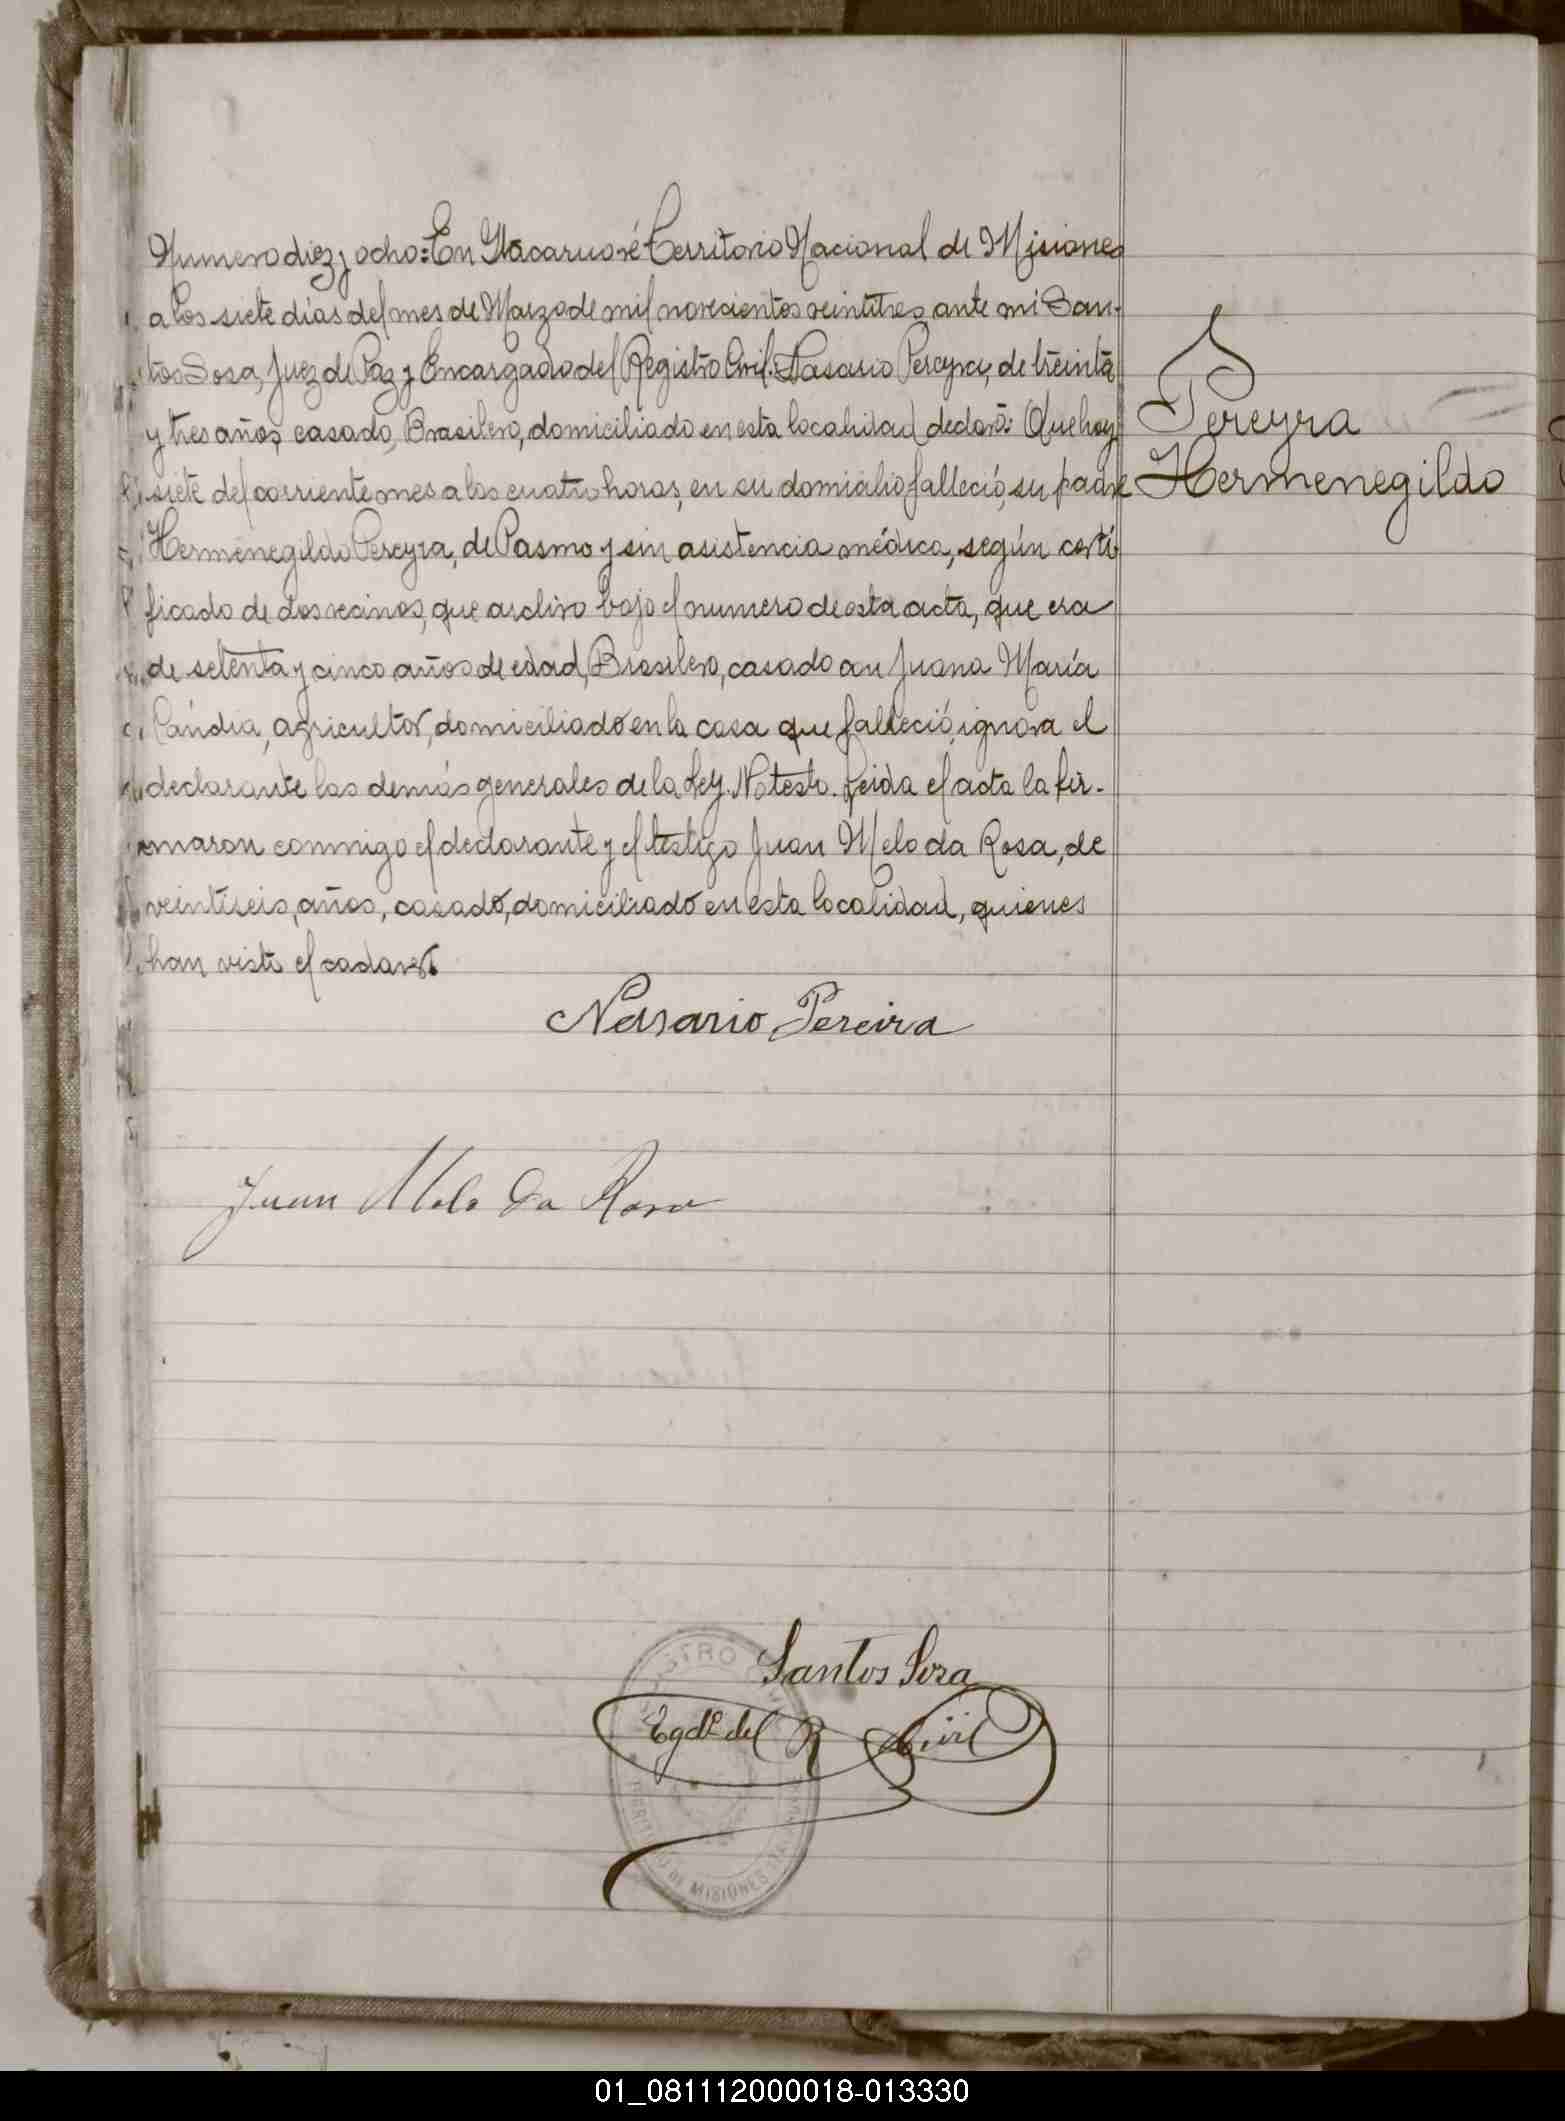 Numero diez y ocho: En Itacaruaré Territorio Nacional de Misiones
a los siete días del mes de Marzo de mil novecientos veintitres, ante mí San-
tos Sosa, Juez de Paz y Encargado del Registro Civil: Nasario Pereyra, de treinta
y tres años, casado, Brasilero, domiciliado en esta localidad declaró: Que hoy
siete del corriente mes a las cuatro horas, en su domicilio falleció, su padre
Hermenegildo Pereyra, de Pasmo y sin asistencia médica, según certi-
ficado de dos vecinos, que archivo bajo el numero de esta acta, que era
de setenta y cinco años de edad, Brasilero, casado con Juana María
Candia, agricultor, domiciliado en la casa que falleció, ignora el
declarante las demás generales de la Ley. No testó. Leida el acta la fir-
maron conmigo el declarante y el testigo Juan Melo da Rosa, de
veintiseis, años, casado, domiciliado en esta localidad, quienes
han visto el cadaver.
Pereyra
Hermenegildo
Nasario Pereira
Juan Melo da Rosa
Santos Sosa
Egdº del R Civil
DE MISIONES
01_081112000018-013330